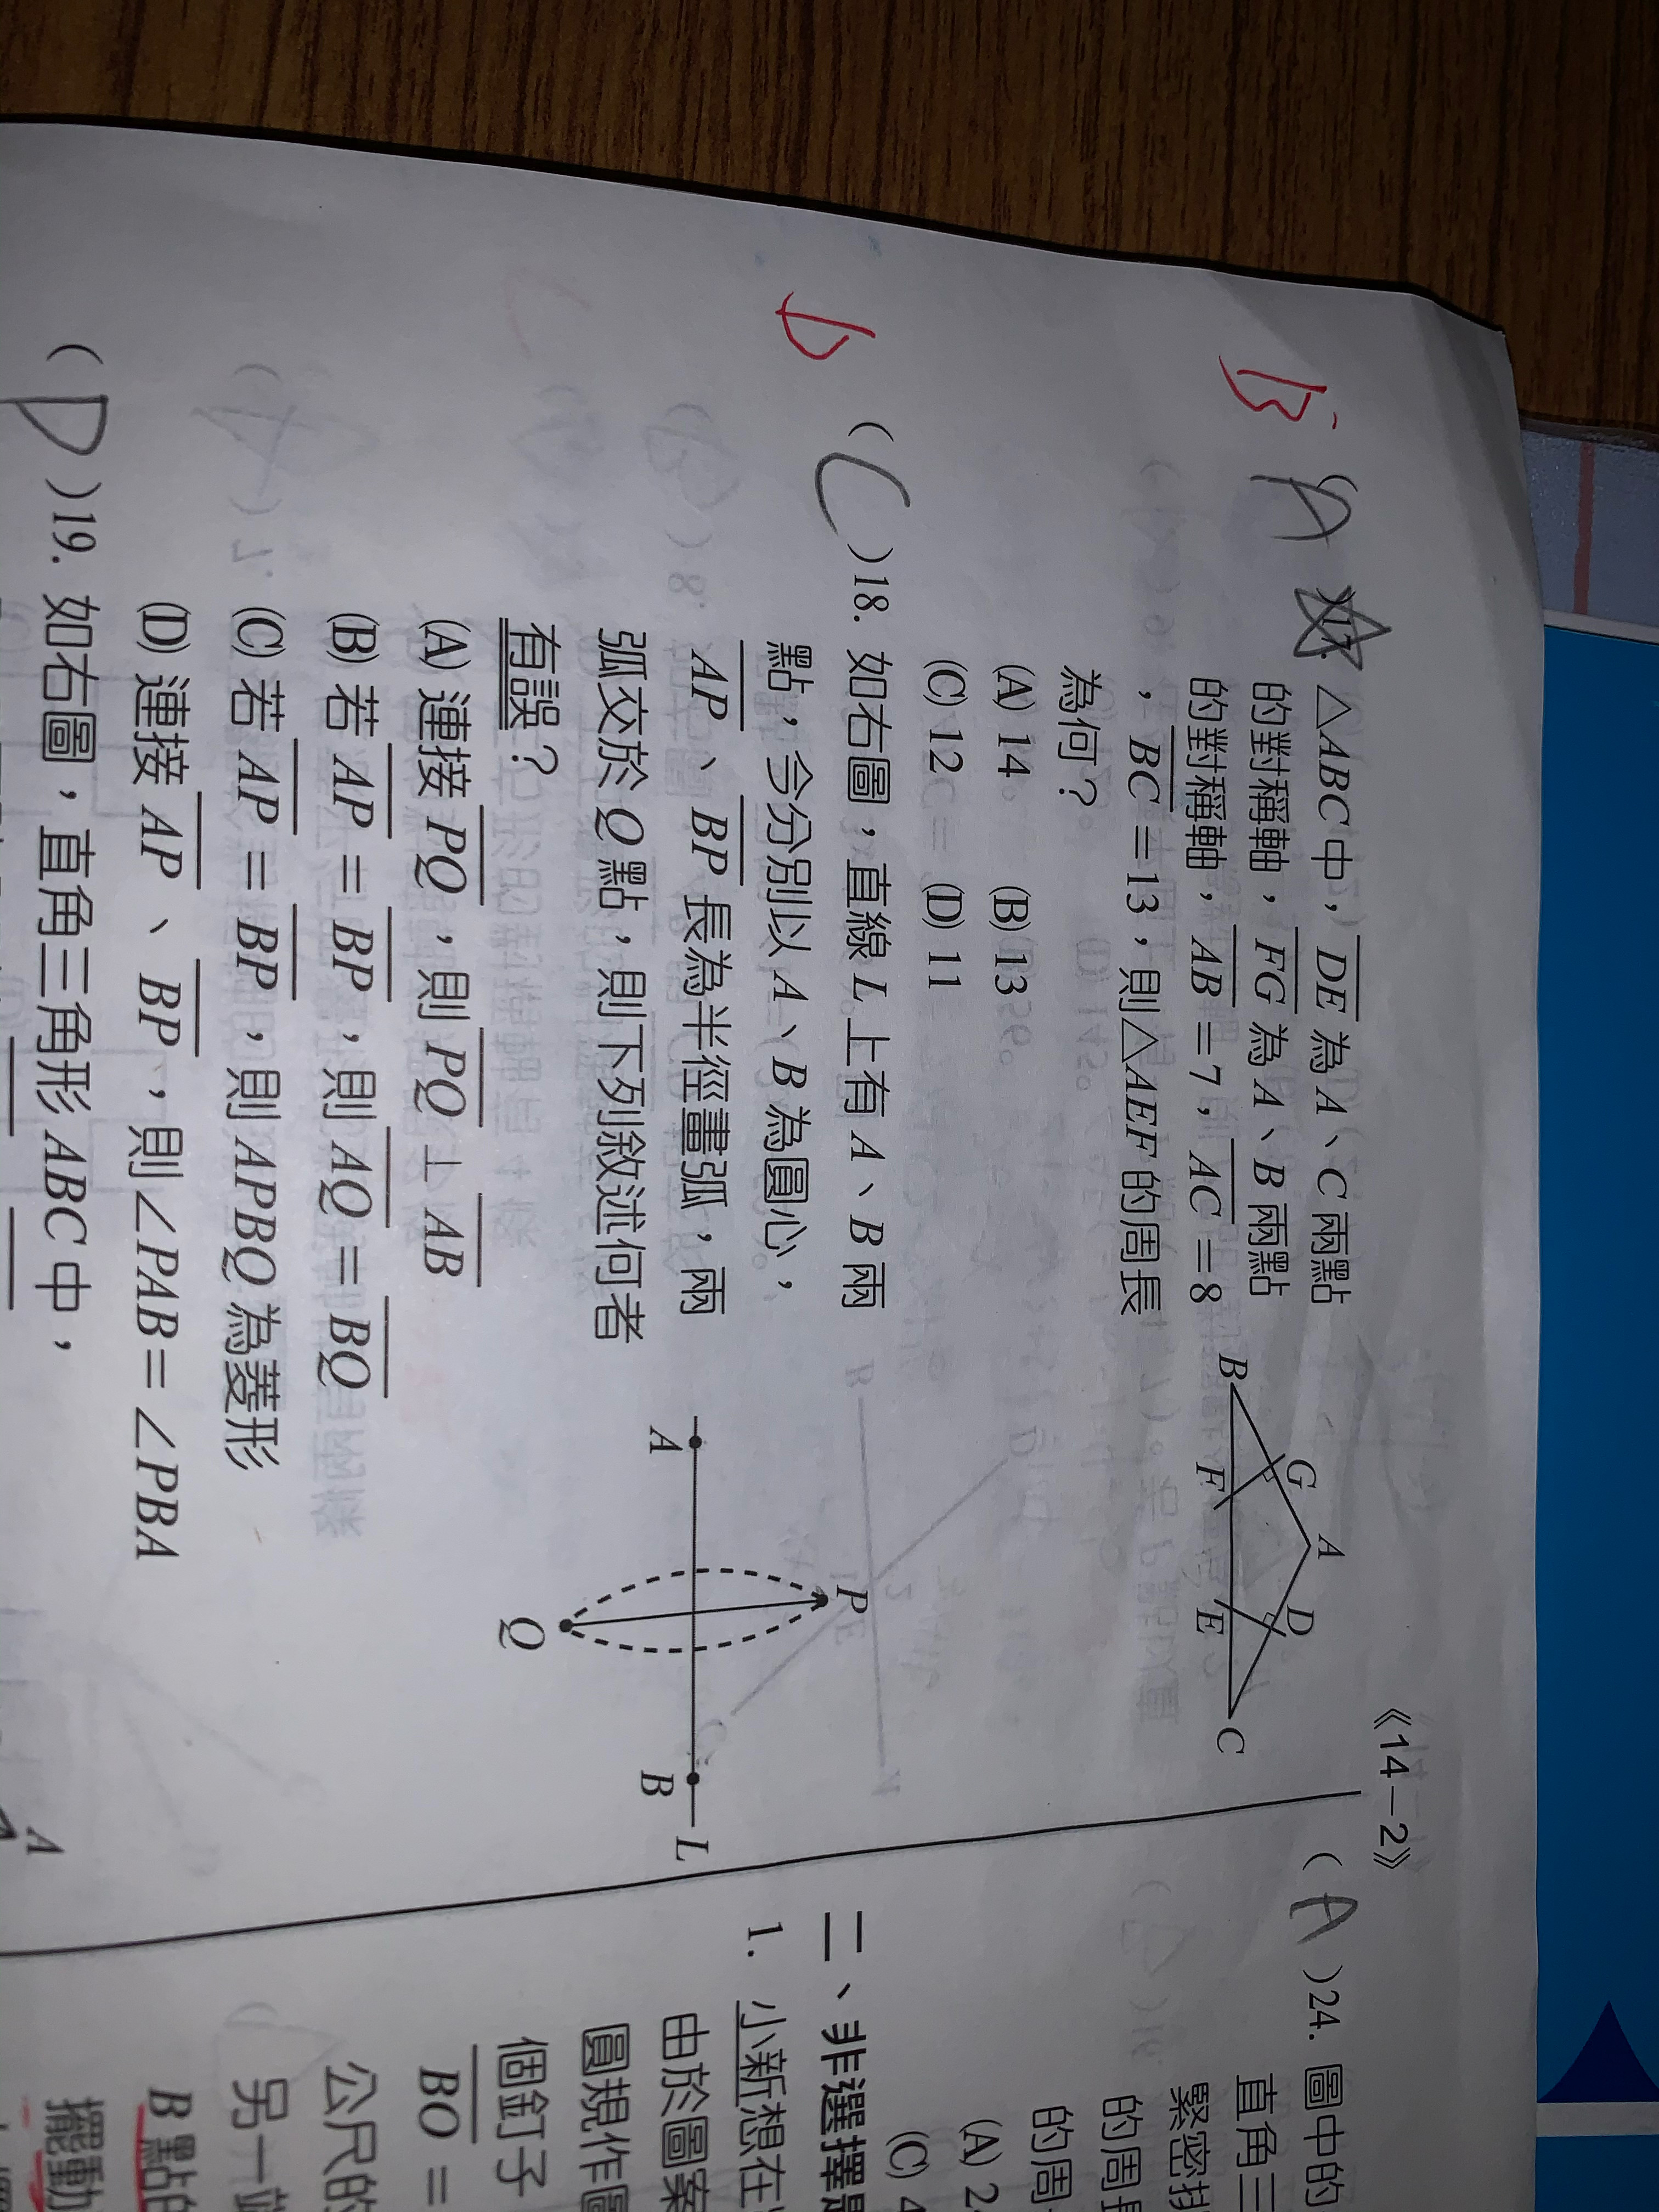 《14－2》
B
(A)17. △ABC中，DE為A、C兩點
的對稱軸，FG為A、B兩點
的對稱軸，AB＝7，AC＝8
，BC＝13，則△AEF的周長
為何？
(A) 14 (B) 13
(C) 12 (D) 11
G A D
B F E C
D
(C)18. 如右圖，直線L上有A、B兩
點，今分別以A、B為圓心，
AP、BP長為半徑畫弧，兩
弧交於Q點，則下列敘述何者
有誤？
(A) 連接PQ，則PQ⊥AB
(B) 若AP＝BP，則AQ＝BQ
(C) 若AP＝BP，則APBQ為菱形
(D) 連接AP、BP，則∠PAB＝∠PBA
P
A B L
Q
(D)19. 如右圖，直角三角形ABC中，
A
(A)24. 圖中的
直角三
緊密排
的周長
的周
(A) 2
(C) 4
二、非選擇題
1. 小新想在
由於圖案
圓規作圖
個釘子
BO＝
公尺的
另一端
B點的
擺動